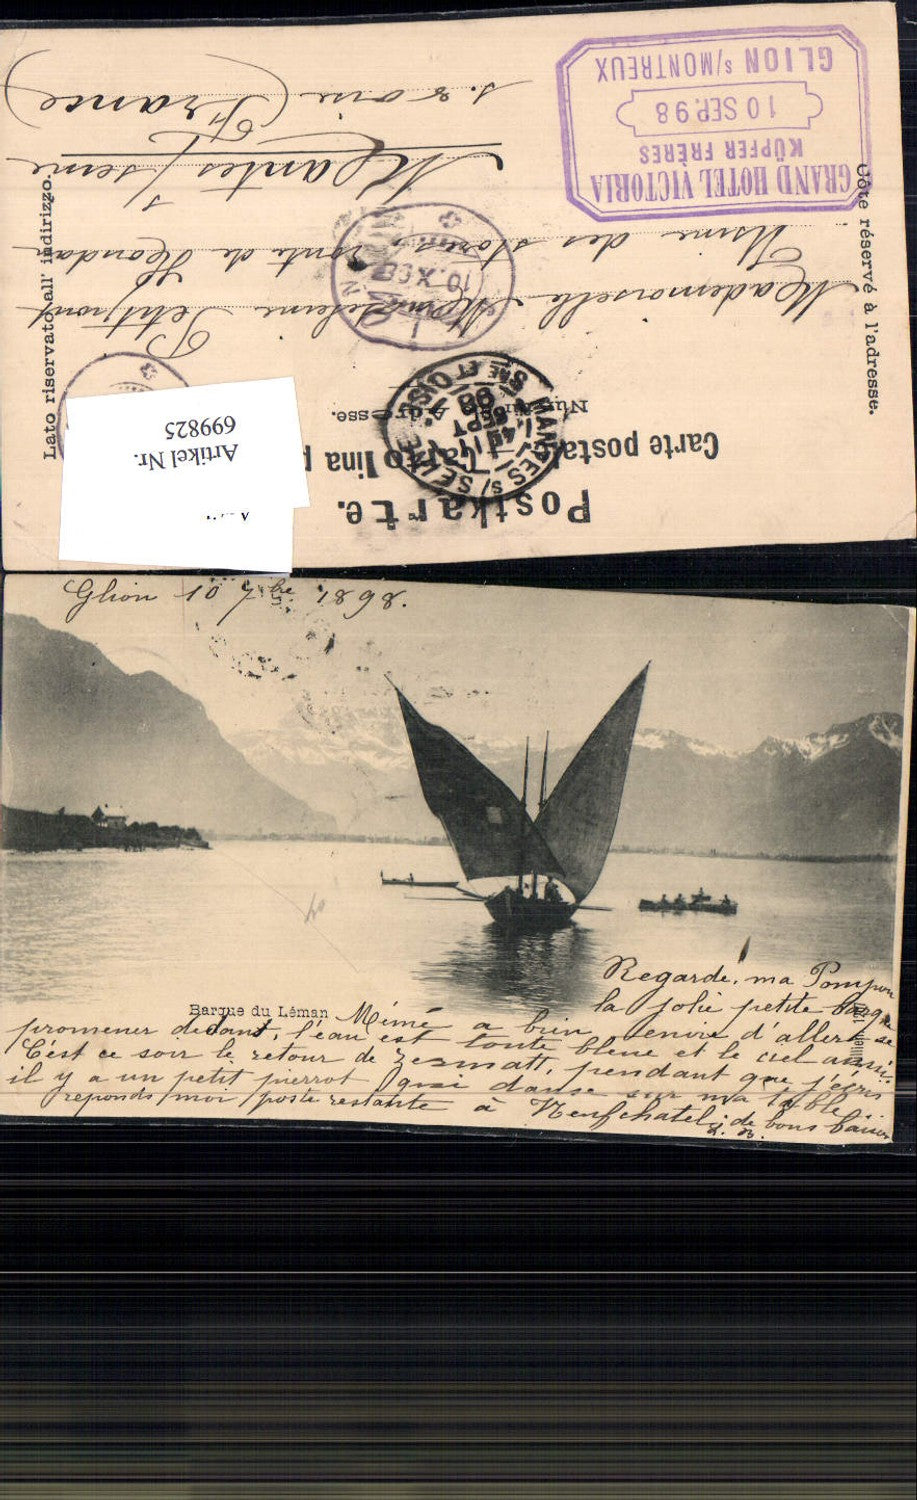 Postkarte.
Carte postale. Cartolina p
Nur für die Adresse.
Côté réservé à l'adresse.
Lato riservato all' indirizzo.
Mademoiselle Madeleine Petitjront
Usine des stores, route de Houdan
Mantes s/ Seine
S. & Oise (France)
GRAND HOTEL VICTORIA
KÜPFER FRÈRES
10 SEP. 98
GLION s/MONTREUX
MANTES S/ SEINE
SNE ET OISE
11 SEPT 98
Artikel Nr.
699825
Glion 10 7bre 1898.
Barque du Léman
Regarde, ma Pompon
la jolie petite barque
Mémé a bien envie d'aller se
promener dedans, l'eau est toute bleue et le ciel aussi.
C'est ce soir le retour de Zermatt, pendant que j'écris
il y a un petit pierrot qui danse sur ma table.
reponds moi poste restante à Neufchatel, de bons baisers